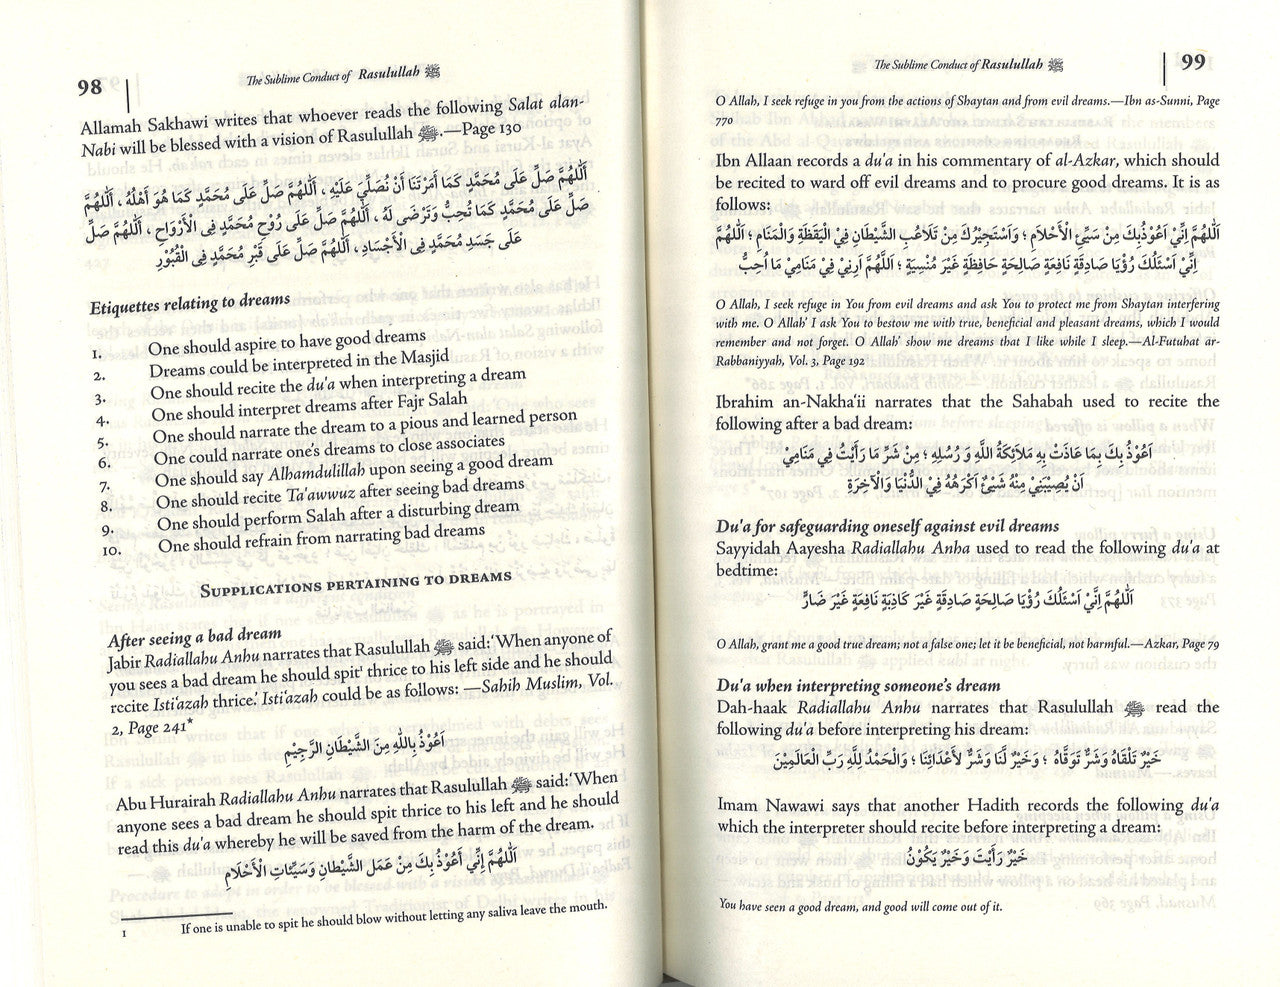 98
The Sublime Conduct of Rasulullah ﷺ
Allamah Sakhawi writes that whoever reads the following Salat alan-
Nabi will be blessed with a vision of Rasulullah ﷺ.—Page 130
اَللّٰهُمَّ صَلِّ عَلَى مُحَمَّدٍ كَمَا أَمَرْتَنَا أَنْ نُصَلِّيَ عَلَيْهِ ، اَللّٰهُمَّ صَلِّ عَلَى مُحَمَّدٍ كَمَا هُوَ أَهْلُهُ ، اَللّٰهُمَّ
صَلِّ عَلَى مُحَمَّدٍ كَمَا تُحِبُّ وَتَرْضَى لَهُ ، اَللّٰهُمَّ صَلِّ عَلَى رُوْحِ مُحَمَّدٍ فِى الْأَرْوَاحِ ، اَللّٰهُمَّ صَلِّ
عَلَى جَسَدِ مُحَمَّدٍ فِى الْأَجْسَادِ ، اَللّٰهُمَّ صَلِّ عَلَى قَبْرِ مُحَمَّدٍ فِى الْقُبُوْرِ
Etiquettes relating to dreams
1. One should aspire to have good dreams
2. Dreams could be interpreted in the Masjid
3. One should recite the du'a when interpreting a dream
4. One should interpret dreams after Fajr Salah
5. One should narrate the dream to a pious and learned person
6. One could narrate one's dreams to close associates
7. One should say Alhamdulillah upon seeing a good dream
8. One should recite Ta'awwuz after seeing bad dreams
9. One should perform Salah after a disturbing dream
10. One should refrain from narrating bad dreams
SUPPLICATIONS PERTAINING TO DREAMS
After seeing a bad dream
Jabir Radiallahu Anhu narrates that Rasulullah ﷺ said:'When anyone of
you sees a bad dream he should spit¹ thrice to his left side and he should
recite Isti'azah thrice.' Isti'azah could be as follows: —Sahih Muslim, Vol.
2, Page 241*
اَعُوْذُ بِاللّٰهِ مِنَ الشَّيْطَانِ الرَّجِيْمِ
Abu Hurairah Radiallahu Anhu narrates that Rasulullah ﷺ said:'When
anyone sees a bad dream he should spit thrice to his left and he should
read this du'a whereby he will be saved from the harm of the dream.
اَللّٰهُمَّ إِنِّي أَعُوْذُ بِكَ مِنْ عَمَلِ الشَّيْطَانِ وَسَيِّئَاتِ الْأَحْلَامِ
1 If one is unable to spit he should blow without letting any saliva leave the mouth.
The Sublime Conduct of Rasulullah ﷺ
99
O Allah, I seek refuge in you from the actions of Shaytan and from evil dreams.—Ibn as-Sunni, Page
770
Ibn Allaan records a du'a in his commentary of al-Azkar, which should
be recited to ward off evil dreams and to procure good dreams. It is as
follows:
اَللّٰهُمَّ اِنِّيْ اَعُوْذُبِكَ مِنْ سَيِّئِ الْأَحْلَامِ ؛ وَاَسْتَجِيْرُكَ مِنْ تَلَاعُبِ الشَّيْطَانِ فِيْ الْيَقَظَةِ وَالْمَنَامِ ؛ اَللّٰهُمَّ
اِنِّيْ اَسْئَلُكَ رُؤْيَا صَادِقَةٍ نَافِعَةٍ صَالِحَةٍ حَافِظَةٍ غَيْرَ مُنْسِيَةٍ ؛ اَللّٰهُمَّ اَرِنِيْ فِيْ مَنَامِيْ مَا اُحِبُّ
O Allah, I seek refuge in You from evil dreams and ask You to protect me from Shaytan interfering
with me. O Allah' I ask You to bestow me with true, beneficial and pleasant dreams, which I would
remember and not forget. O Allah' show me dreams that I like while I sleep.—Al-Futuhat ar-
Rabbaniyyah, Vol. 3, Page 192
Ibrahim an-Nakha'ii narrates that the Sahabah used to recite the
following after a bad dream:
اَعُوْذُ بِكَ بِمَا عَاذَتْ بِهِ مَلَائِكَةُ اللَّهِ وَ رُسُلِهِ ؛ مِنْ شَرِّ مَا رَأَيْتُ فِي مَنَامِيْ
أَنْ يُصِيْبَنِيْ مِنْهُ شَيْئٌ اَكْرَهُهُ فِيْ الدُّنْيَا وَالْآخِرَةِ
Du'a for safeguarding oneself against evil dreams
Sayyidah Aayesha Radiallahu Anha used to read the following du'a at
bedtime:
اَللّٰهُمَّ اِنِّيْ اَسْئَلُكَ رُؤْيَا صَالِحَةٍ صَادِقَةٍ غَيْرَ كَاذِبَةٍ نَافِعَةٍ غَيْرَ ضَارٍّ
O Allah, grant me a good true dream; not a false one; let it be beneficial, not harmful.—Azkar, Page 79
Du'a when interpreting someone's dream
Dah-haak Radiallahu Anhu narrates that Rasulullah ﷺ read the
following du'a before interpreting his dream:
خَيْرٌ تَلْقَاهُ وَشَرٌّ تَوَقَّاهُ ؛ وَخَيْرٌ لَنَا وَشَرٌّ لِأَعْدَائِنَا ؛ وَالْحَمْدُ لِلّٰهِ رَبِّ الْعَالَمِيْنَ
Imam Nawawi says that another Hadith records the following du'a
which the interpreter should recite before interpreting a dream:
خَيْرٌ رَأَيْتَ وَخَيْرٌ يَكُوْنُ
You have seen a good dream, and good will come out of it.